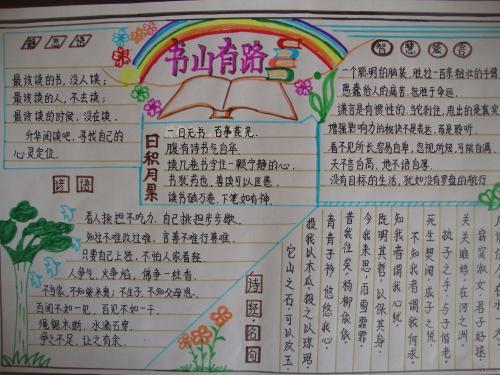 书山有路
最该读的书,没人读;
最该读的人,不去读;
最该读的时候,没在读.
升华阅读吧,寻找自己的
心灵定位.
智慧
一个聪明的脑袋,胜过一百条粗壮的手臂
愚蠢给人的痛苦,甚于命运.
谎言是有惯性的,当它刹住,甩出的是真实
增强影响力的秘诀不是表达,而是聆听.
看不见所长容易自卑,忽视所短,可能自满.
天不言自高,地不语自厚.
没有目标的生活,犹如没有罗盘的航行
日积月累
一日无书,百事荒芜.
腹有诗书气自华
读几卷书守住一颗宁静的心.
书犹药也,善读可以医愚.
读书破万卷,下笔如有神.
谚语
看人挑担不吃力,自己挑担步步歇.
知过不难改过难,言善不难行善难.
只要自己上进,不怕人家看轻.
人争气,火争焰,佛争一炷香.
不当家,不知柴米贵;不生子,不知父母恩.
百闻不如一见,百见不如一干.
绳锯木断,水滴石穿.
争之不足,让之有余.
诗经名句
它山之石,可以攻玉.
投我以木瓜,投之以琼琚
青青子衿,悠悠我心
昔我往矣,杨柳依依
今我来思,雨雪霏霏
既明其哲,以保其身
知我者谓我心忧
不知我者谓我何求.
死生契阔,成子之悦
执子之手,与子偕老
关关雎鸠,在河之洲
窈窕淑女,君子好逑.